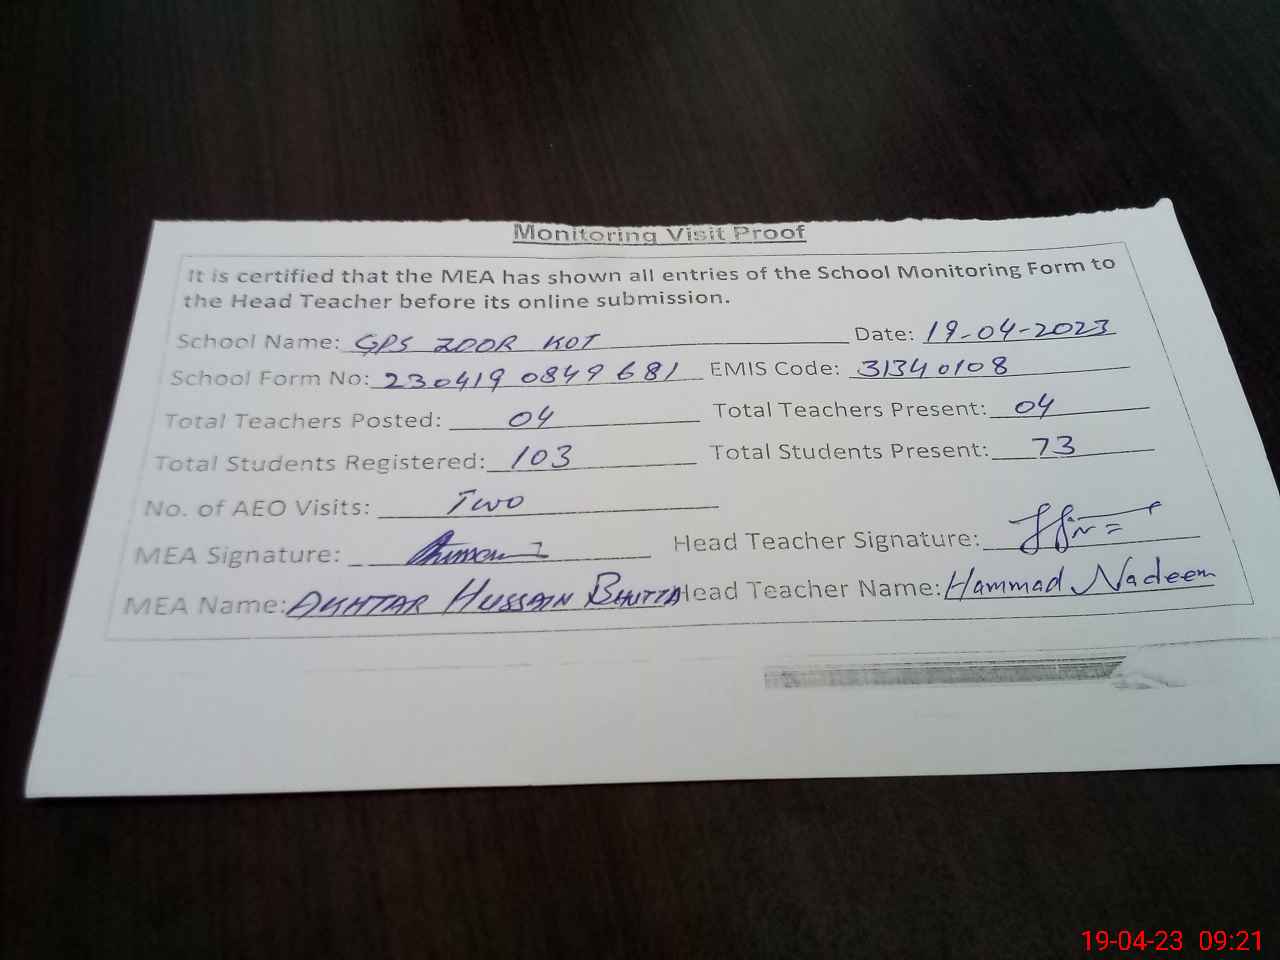 Monitoring Visit Proof
It is certified that the MEA has shown all entries of the School Monitoring Form to
the Head Teacher before its online submission.
School Name: GPS ZOOR KOT Date: 19-04-2023
School Form No: 230419 0849681 EMIS Code: 31340108
Total Teachers Posted: 04 Total Teachers Present: 04
Total Students Registered: 103 Total Students Present: 73
No. of AEO Visits: Two
MEA Signature: Head Teacher Signature:
MEA Name: AKHTAR HUSSAIN BHUTTA Head Teacher Name: Hammad Nadeem
19-04-23 09:21